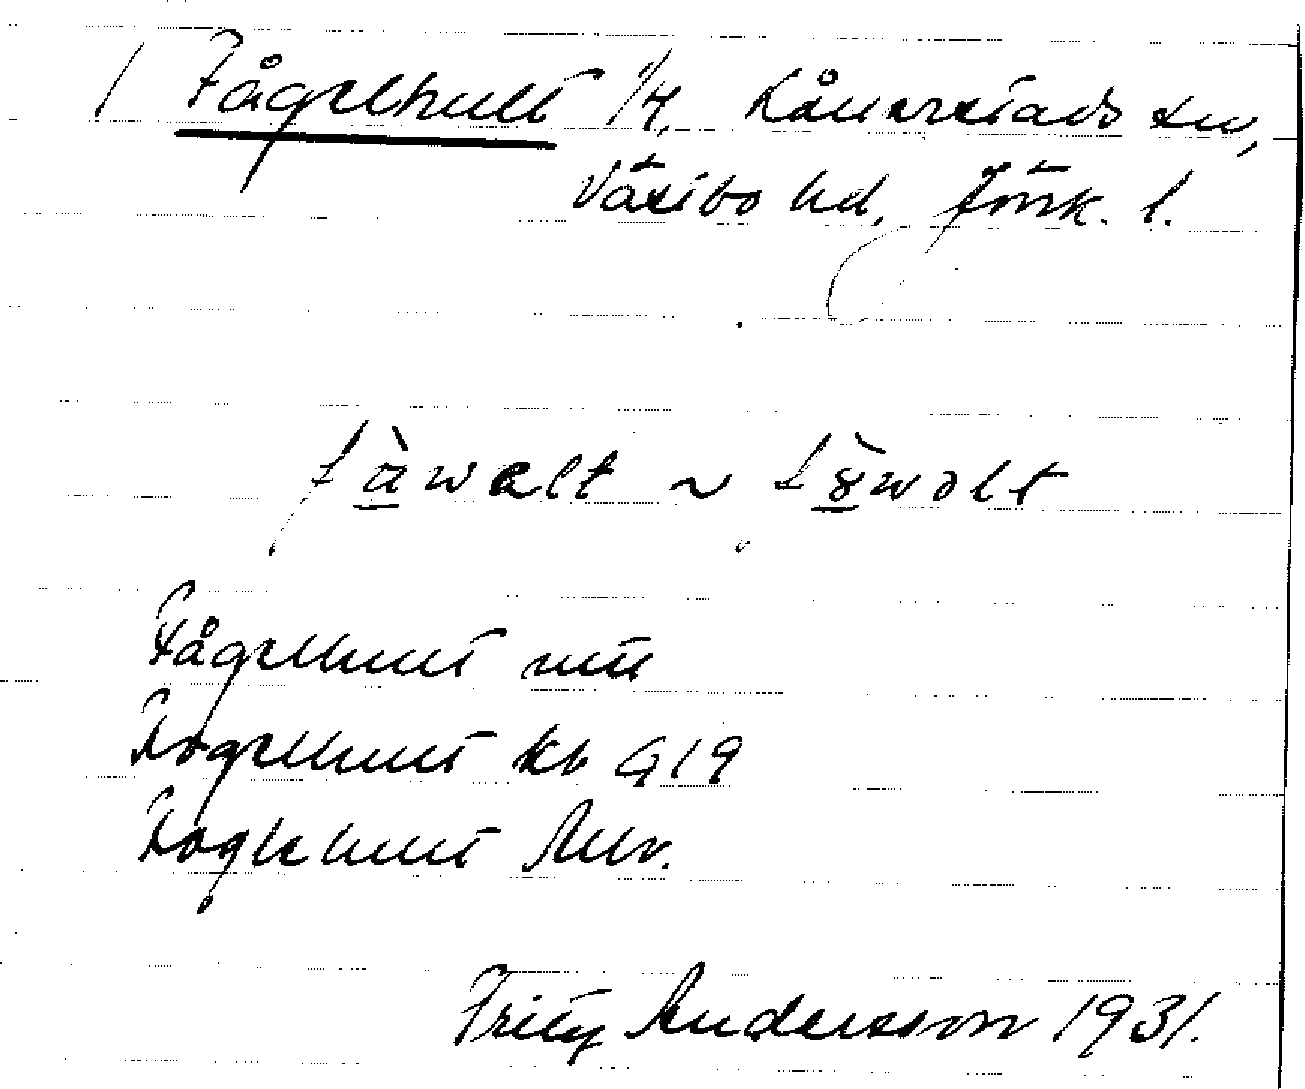 Fågelhult 1/4, Kånnestads sn,
Västbo hd, Jönk. l.
fàwalt ~ fɤ̀wəlt
Fågelhult uttr
Fogelhult kb G19
Foglehult Adr.
Fritz Andersson 1931.